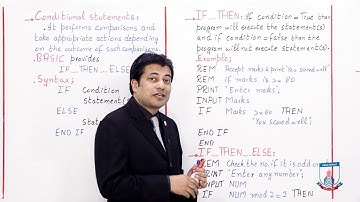 Conditional statements:
. It performs comparisons and
take appropriate actions depending
on the outcome of such comparisons.
. BASIC provides
IF...THEN...ELSE
. Syntax:
IF Condition
statement(
ELSE
Stateme
END IF
. IF...THEN: If condition = True then
program will execute the statement(s)
and if condition = false then the
program will not execute statement(s).
. Example:
REM Accept marks & print "You scored well"
REM if marks is >= 80
PRINT "Enter marks",
INPUT Marks
IF Marks >= 80 THEN
"You scored well";
END IF
END
. IF...THEN...ELSE:
REM Check the no. if it is odd or
PRINT "Enter any number";
INPUT NUM
IF NUM mod 2 = 1 THEN